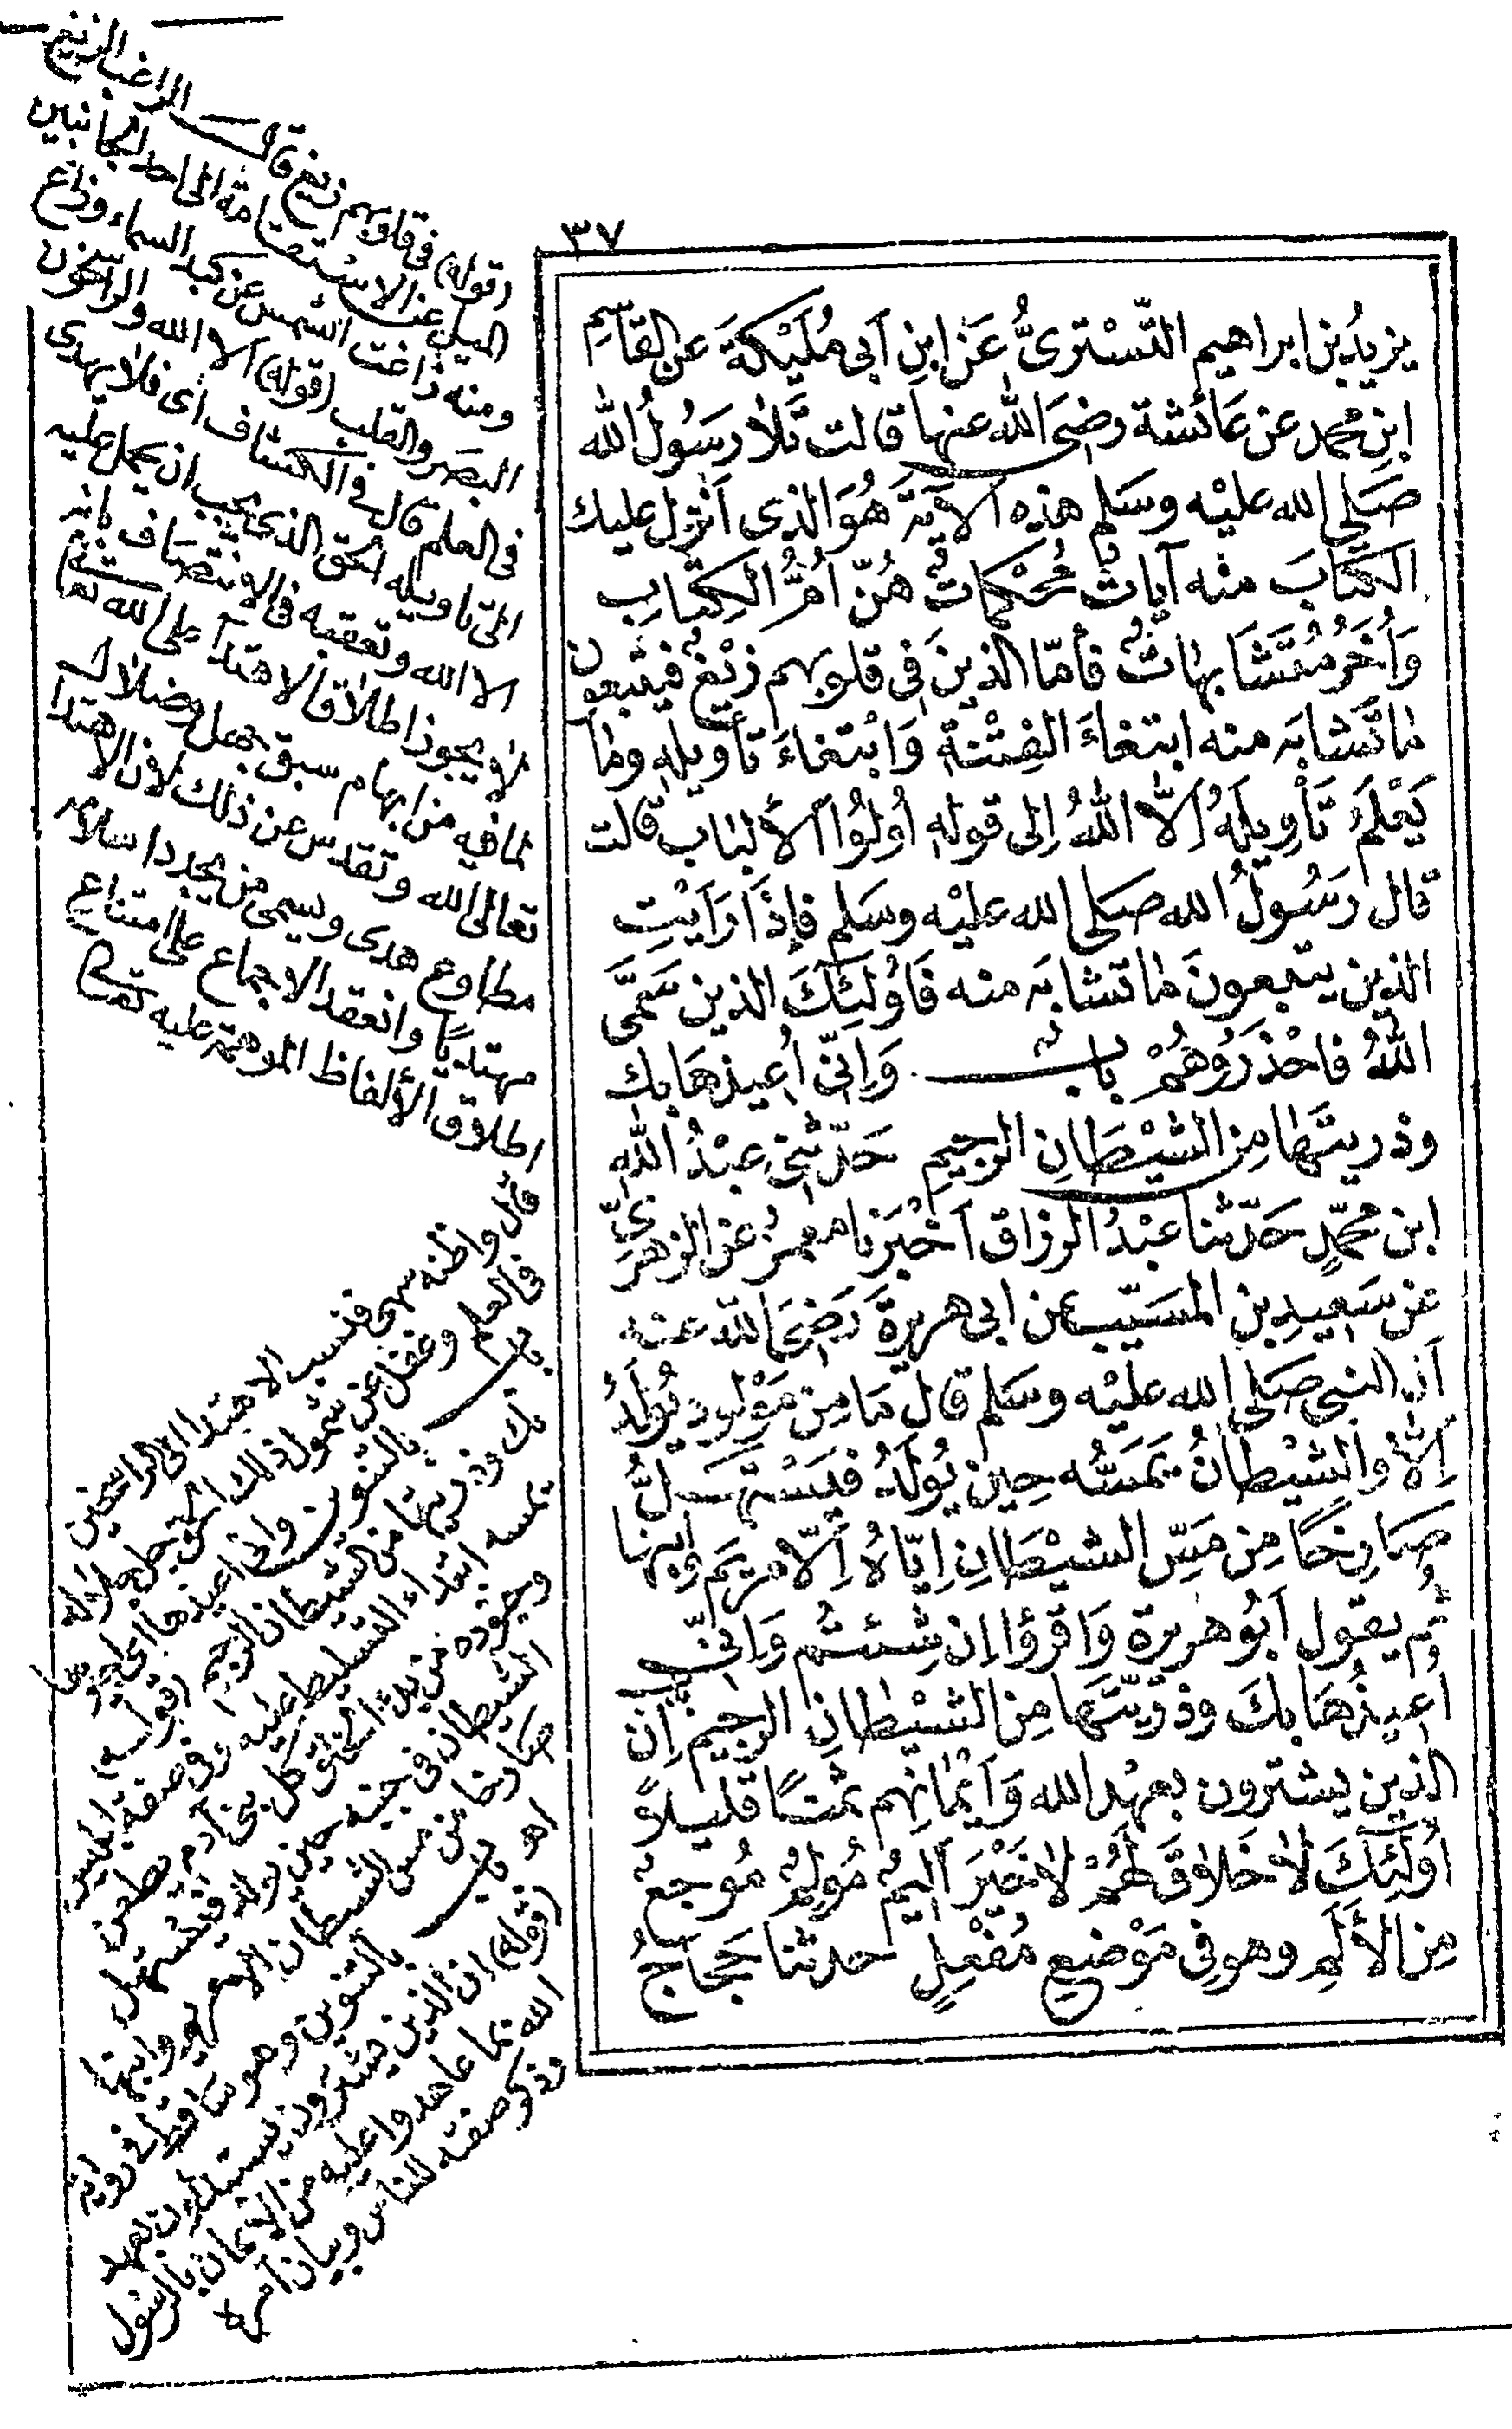 ٣٧
يزيدُ بن ابراهيم التّسْتَرىُّ عَنْ ابنِ اَبى مُلَيْكةَ عن القاسِم
ابنِ محمد عن عَائشة رضىَ اللّٰه عنها قالت تَلاٰ رسَوُلُ اللّٰه
صَلى الله عليْه وسَلم هذِه الآيَةَ هُوَ الذى اَنْزل عليك
الكتَابَ منه آيٰاتٌ مُحْكمٰاتٌ هُنّ اُمُّ الكِتٰابِ
وَاُخَرُ مُتَشَابهٰاتٌ فأمّا الذينَ فى قلوبهم زيْغٌ فيتّبعون
مٰا تَشابَه منه ابتغاءَ الفِتْنةِ وَابْتغاءَ تأويلهِ ومٰا
يَعْلَمُ تَأْوِيلَهُ اِلّا اللّٰهُ اِلى قولهِ اُولوُا الأَلبٰاب قالت
قال رَسُولُ الله صَلى الله عليْه وسَلم فإذَا رَاَيْتِ
الذين يتبعونَ مٰا تشابَه منه فَاُولٰئِكَ الذين سَمَّى
اللّٰهُ فاحْذَروُهُمْ بابٌ وَاِنّى اُعيذهَا بك
وذريتهٰا مِن الشيْطَانِ الرجيمِ حَدّثنى عبْدُ اللّٰهِ
ابن محمّدٍ حَدّثنا عبْدُ الرزاق اَخْبَرَنا معمرٌ عن الزهرىِّ
عن سَعيدِ بن المسَيّب عن ابى هريرةَ رَضىَ اللّٰه عنه
اَن النبى صَلى الله عليْه وسَلم قال مَا مِن مَوْلود يُولَدُ
اِلّا والشيْطانُ يَمَسُّه حِين يُولَدُ فيَسْتَهِلُّ
صَارِخًا مِن مَسِّ الشيْطَانِ اِيّاهُ اِلّا مريَمَ وابنها
ثُم يقول اَبُو هريرة وَاقرؤا إن شِئتُم وَاِنّى
اُعيذُهَا بكَ وذرّيّتَها مِن الشيْطانِ الرجيم بابٌ اِنّ
الذين يشترون بعهْد الله وَاَيْمٰانِهم ثمنًا قليلاً
اُولٰئكَ لاٰ خَلاٰقَ لَهُمْ لاٰ خَيْرَ اَليمٌ مُولِمٌ مُوجعٌ
مِن الأَلَم وهو فى مَوْضعِ مُفْعِلٍ حدثنا حَجّاجُ
(قوله) فى قلوبهم زيغ قال الراغب الزيغ
الميل عن الاستقامة الى احد الجانبين
ومنه زاغت الشمس عن كبد السماء وزاغ
البصر والقلب (قوله) الا الله والراسخون
فى العلم قال فى الكشاف أى فلا يهدى
الى تأويله الحق الذى يجب ان يحمل عليه
الا الله وتعقبه فى الانتصاف بانه
لا يجوز اطلاق الاهتداء على الله تعالى
لما فيه من ايهام سبق جهل وضلال
تعالى الله وتقدس عن ذلك لان الاهتداء
مطاوع هدى ويسمى من يجدد اسلامه
مهتديا وانعقد الاجماع على امتناع
اطلاق الألفاظ الموهمة عليه تعالى
قال واظنه سهى فنسب الاهتدا الى الراسخين
فى العلم وغفل عن شمول ذلك الحق جل جلاله
باب بالتنوين وانى اعيذها اى اجيرها
بك وذريتها من الشيطان الرجيم (قوله)
يمسه ابتداء التسليط عليه وفى صفة ابليس
وجنوده من بدء الخلق كل بنى آدم يطعن
الشيطان فى جنبه حين يولد فيستهل
صارخا من مس الشيطان الا مريم وابنها
اهـ باب بالتنوين وهو ساقط فى رواية
(قوله) ان الذين يشترون يستبدلون بعهد
الله بما عاهدوا عليه من الايمان بالرسول
وذكر صفته للناس وبيان امره